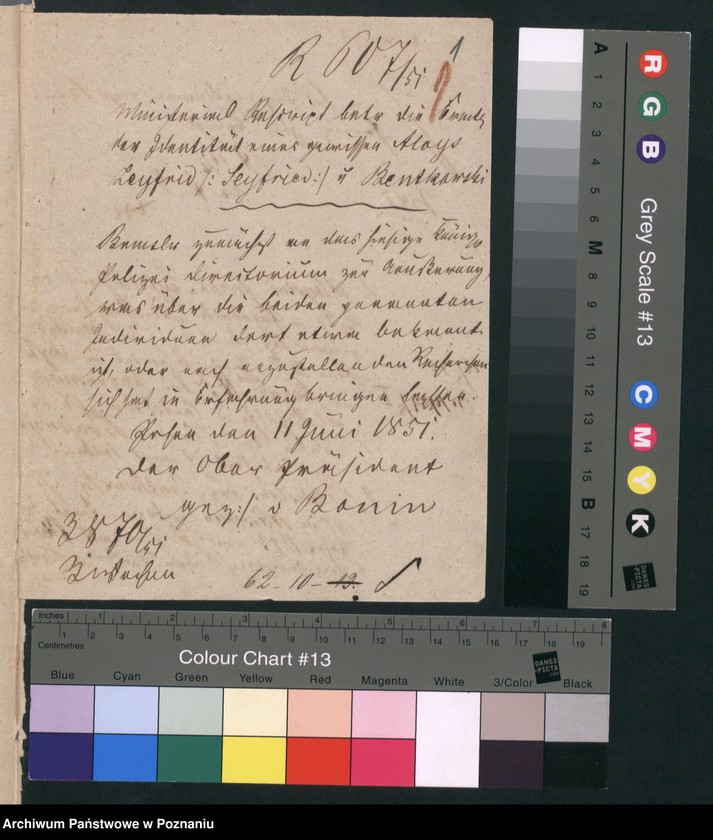 R 607/51
1
Ministerial Rescript betr die Ermittl
der Identität eines gewissen Aloys
Leyfrid /: Seyfried :/ u Bentkowski
zunächst an das hiesige Königl
Polizei Directorium zur Aeußerung,
was über die beiden genannten
Individuen dort etwa bekannt
ist, oder nach anzustellenden Recherchen
sich hat in Erfahrung bringen lassen.
Posen den 11 Juni 1851.
Der Ober Präsident
gez:/ v Bonin
3870/51
3 Wochen
62-10-13.
A 1 2 3 4 5 6 M 8 9 10 11 12 13 14 15 B 17 18 19
R G B
Grey Scale #13
C M Y K
DANES
PICTA
.COM
Inches 1 2 3 4 5 6 7 8
Centimetres 1 2 3 4 5 6 7 8 9 10 11 12 13 14 15 16 17 18 19
Colour Chart #13
DANES
PICTA
.COM
Blue Cyan Green Yellow Red Magenta White 3/Color Black
Archiwum Państwowe w Poznaniu